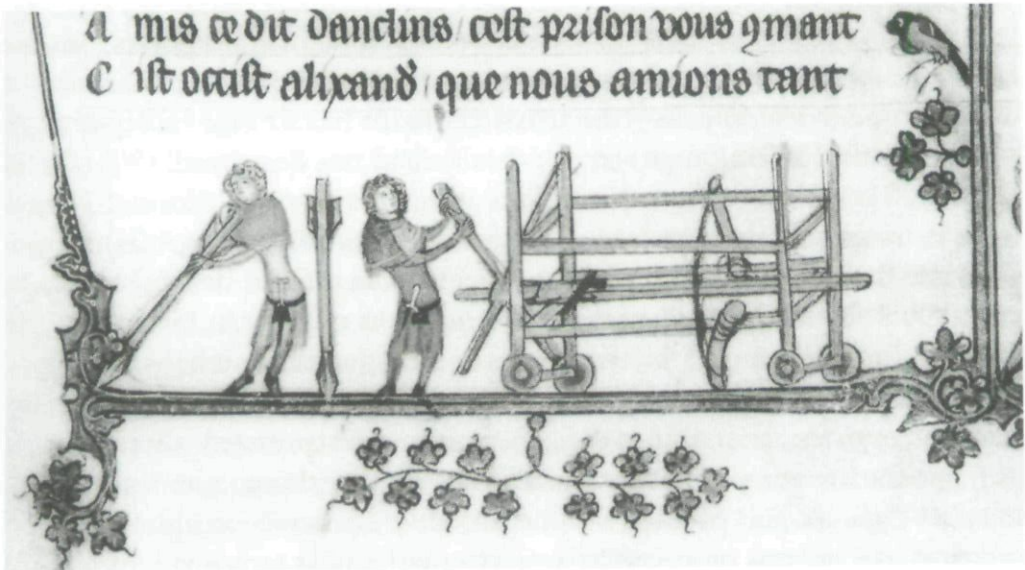 A mis ce dit dauclins / cest prison vous ꝯmant
C ist occist alixand᷒ / que nous amions tant